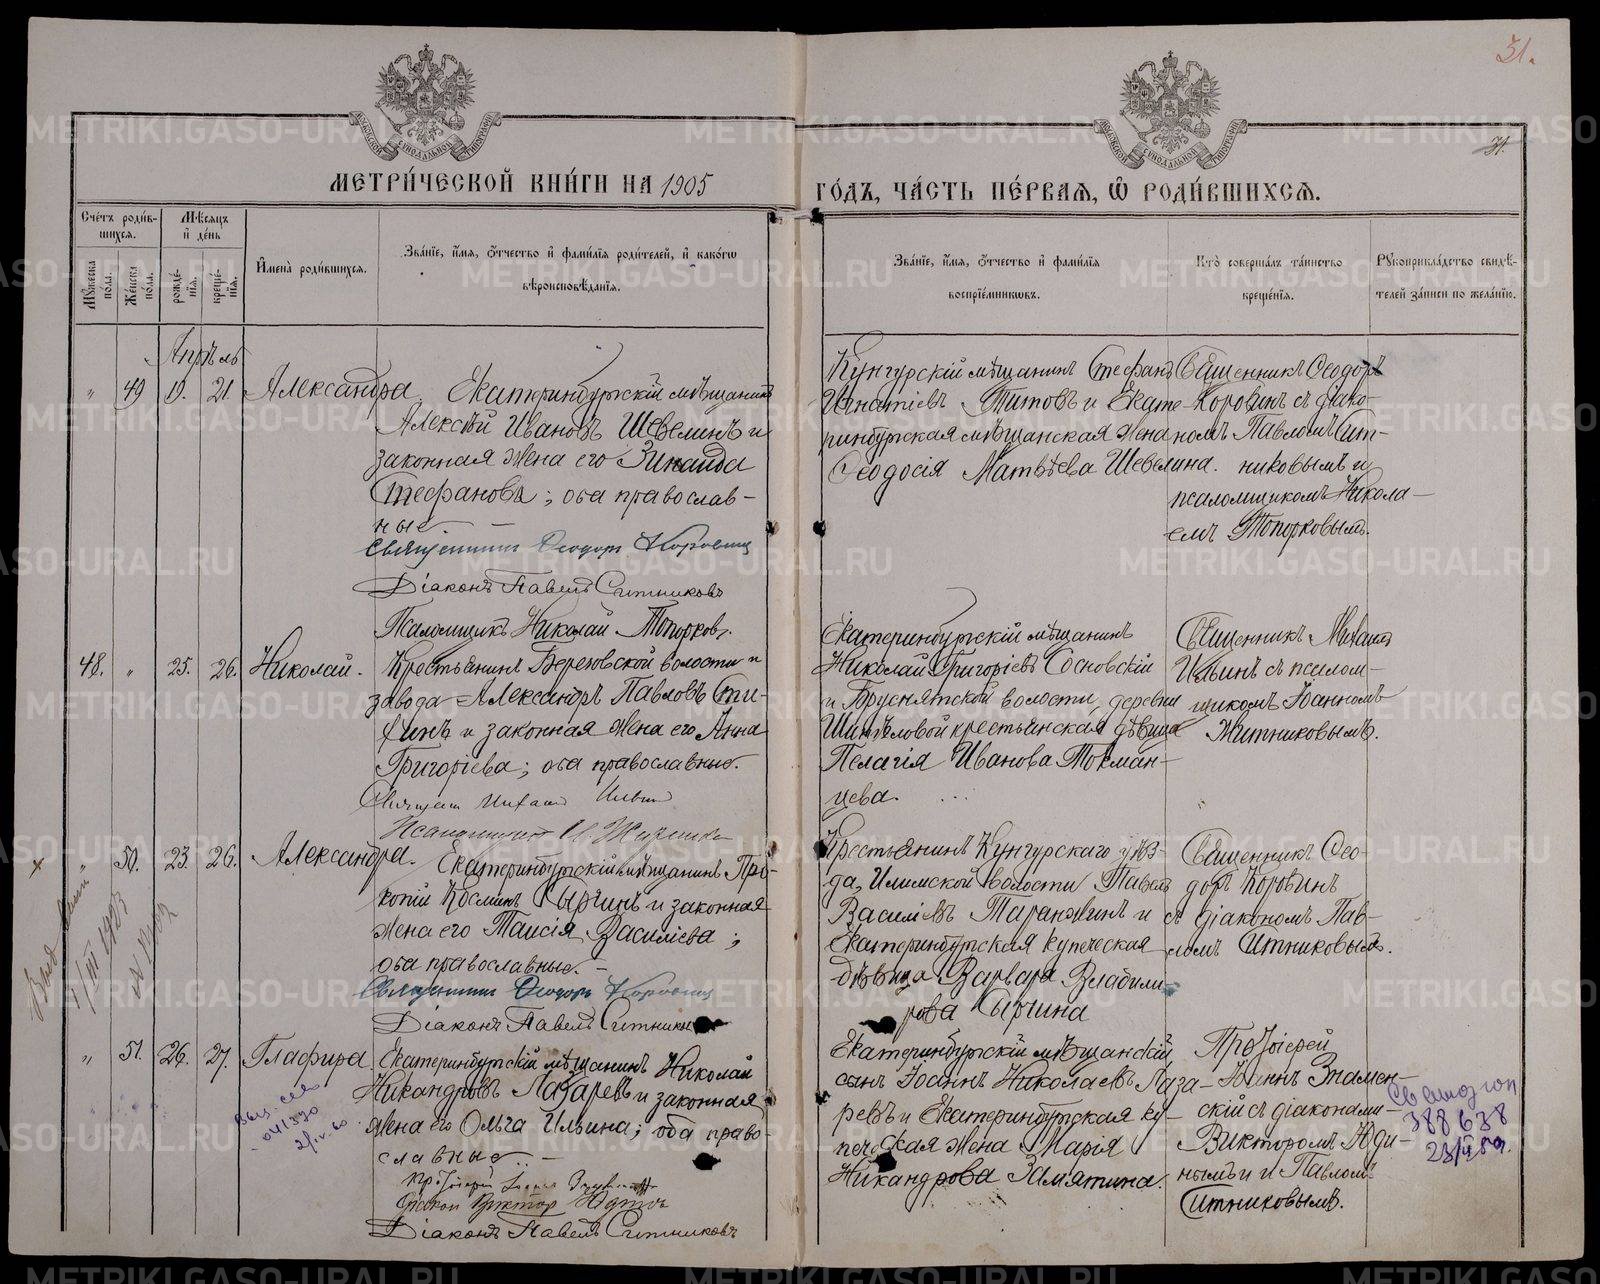 31.
31.
МЕТРИ́ЧЕСКОЙ КНИ́ГИ НА 1905
ГО́ДЪ, ЧА́СТЬ ПЕ́РВАѦ, Ѡ҆ РОДИ́ВШИХСѦ.
Сче́тъ роди́в-
шихсѧ.
Мѣ́сѧцъ
и҆ де́нь
Мꙋ́жеска по́ла.
Же́нска по́ла.
рожде́-
нїѧ.
креще́-
нїѧ.
И҆мена̀ роди́вшихсѧ.
Зва́нїе, и҆́мѧ, ѻ҆́тчество и҆ фами́лїѧ роди́телей, и҆ како́гѡ
вѣроисповѣ́данїѧ.
Зва́нїе, и҆́мѧ, ѻ҆́тчество и҆ фами́лїѧ
воспрїе́мникѡвъ.
Кто̀ соверша́лъ та́инство
креще́нїѧ.
Рꙋкоприкла́дство свидѣ́-
телей за́писи по жела́нїю.
Апрѣль
" 49 19. 21. Александра.
Екатеринбургскій мѣщанинъ
Алексѣй Ивановъ Шевелинъ и
законная жена его Зинаида
Стефанова; оба православ-
ные
Священникъ Ѳеодоръ Коровинъ
Діаконъ Павелъ Ситниковъ
Псаломщикъ Николай Топорковъ.
Кунгурскій мѣщанинъ Стефанъ
Игнатіевъ Титовъ и Екате-
ринбургская мѣщанская жена
Ѳеодосія Матвѣева Шевелина.
Священникъ Ѳеодоръ
Коровинъ съ діако-
номъ Павломъ Сит-
никовымъ и
псаломщикомъ Никола-
емъ Топорковымъ.
48. " 25. 26. Николай.
Крестьянинъ Березовской волости и
завода Александръ Павловъ
и законная жена его Анна
Григоріева; оба православные.
Священ Михаилъ Ильинъ
Екатеринбургскій мѣщанинъ
Николай Григоріевъ Сосновскій
и Бруснятской волости, деревни
крестьянская дѣвица
Пелагія Иванова Токман-
цева.
Священникъ Михаилъ
Ильинъ съ псалом-
щикомъ Іоанномъ
Житниковымъ.
" 50. 23. 26. Александра.
Екатеринбургскій мѣщанинъ Про-
копій Косминъ Сырчинъ и законная
жена его Таисія Василіева;
оба православные.
Священникъ Ѳеодоръ Коровинъ
Діаконъ Павелъ Ситниковъ
Крестьянинъ Кунгурскаго уѣз-
да, Илимской волости Павелъ
Василіевъ и
Екатеринбургская купеческая
дѣвица Варвара Владими-
рова Сырчина
Священникъ Ѳео-
доръ Коровинъ
съ діакономъ Пав-
ломъ Ситниковымъ.
1923
" 51. 26. 27. Глафира
Екатеринбургскій мѣщанинъ Николай
Никандровъ Лазаревъ и законная
жена его Ольга Ильина; оба право-
славные.
Діаконъ Павелъ Ситниковъ
Екатеринбургскій мѣщанскій
сынъ Іоаннъ Николаевъ Лаза-
ревъ и Екатеринбургская ку-
печеская жена Марія
Никандрова Замятина.
Протоіерей
Іоаннъ Знамен-
скій съ діаконами-
Викторомъ Юди-
нымъ и Павломъ
Ситниковымъ.
388638